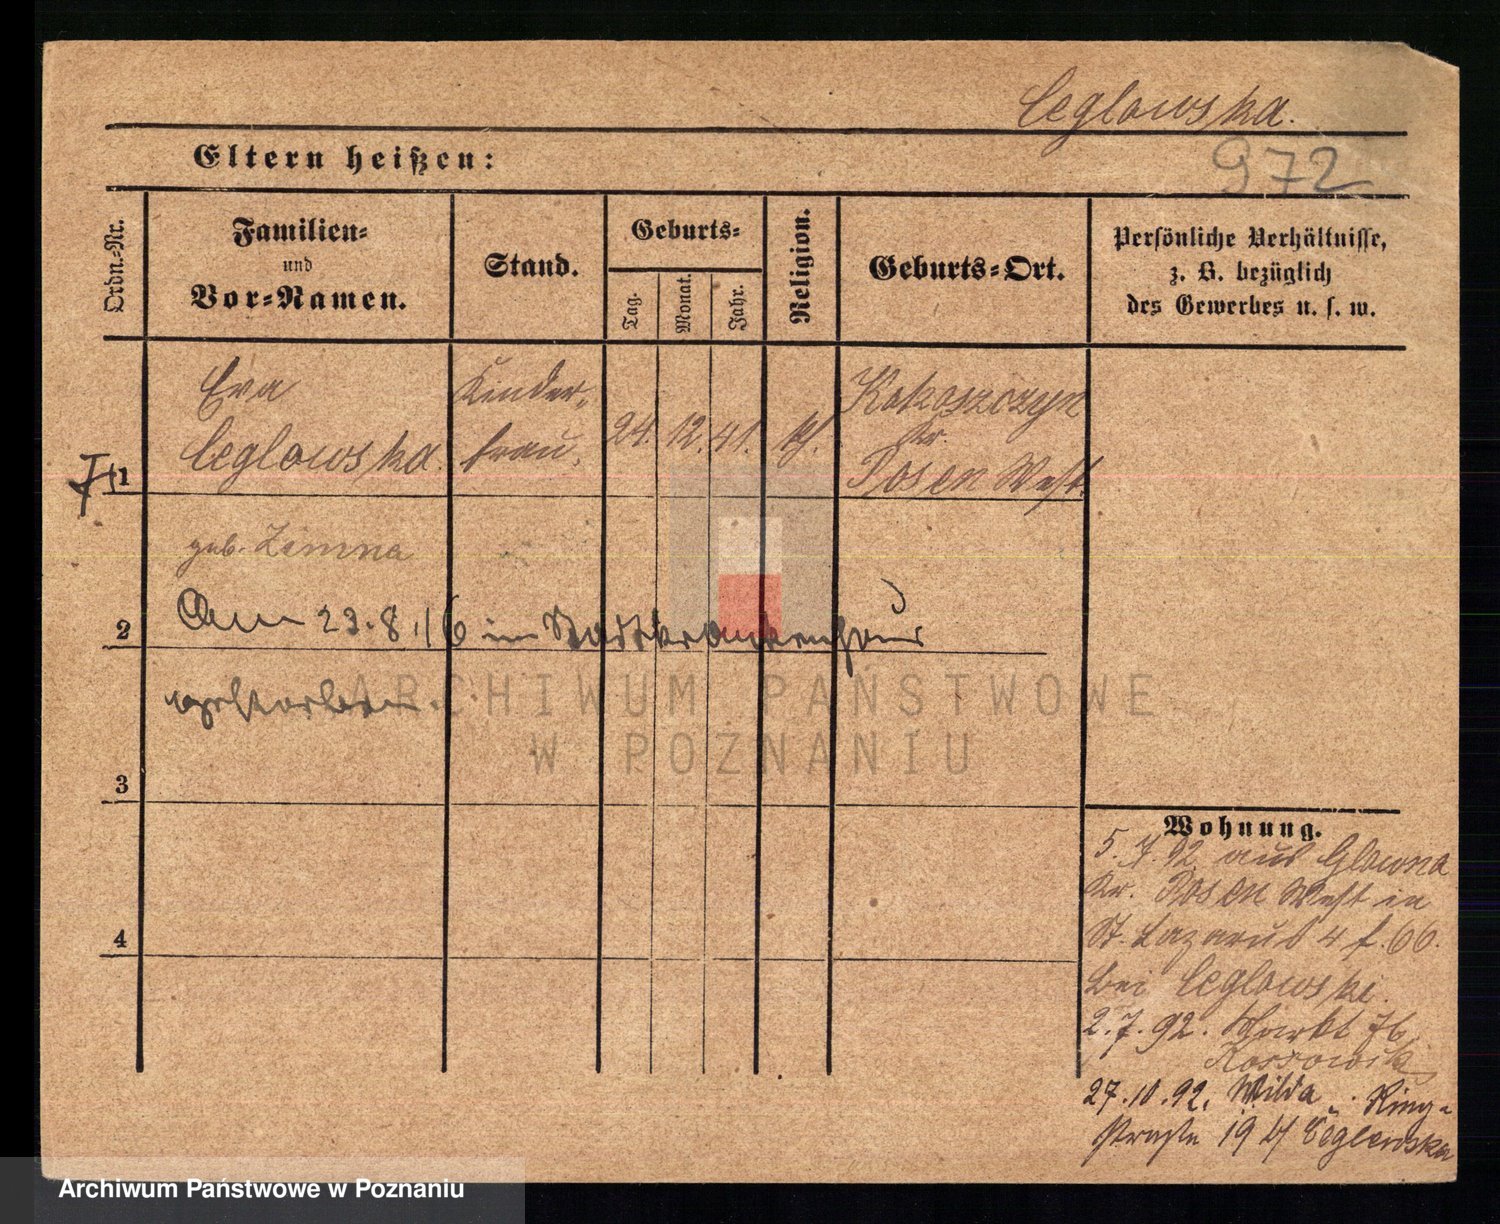 Ceglowska.
Eltern heißen:
972
Ordn.-Nr.
Familien-
und
Vor-Namen.
Stand.
Geburts-
Tag.
Monat.
Jahr.
Religion.
Geburts-Ort.
Persönliche Verhältnisse,
z. B. bezüglich
des Gewerbes u. s. w.
1
Eva
Ceglowska.
Kinder-
frau.
24. 12. 41.
k.
Kokoszczyn
Kr.
Posen West.
geb. Zimna
2
Am 23.8.16 im Stadtkrankenhaus
gestorben.
3
4
Wohnung.
5.7.92 aus Glowna
Kr. Posen West in
St. Lazarus 4 f. 66.
bei Ceglowski.
2.7.92. Markt 76
27.10.92. Wilda, Ring-
straße 19 Ceglewska
ARCHIWUM PAŃSTWOWE
W POZNANIU
Archiwum Państwowe w Poznaniu